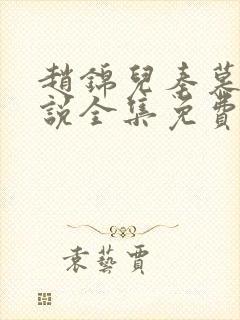 趙錦兒秦慕
說全集免費
袁藝賈